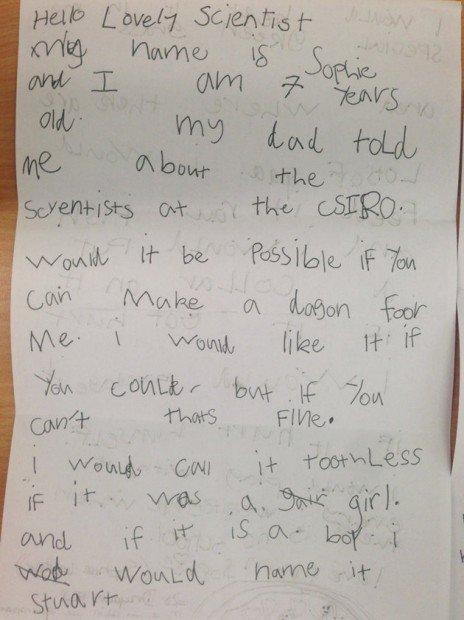 Hello Lovely Scientist
my name is Sophie
and I am 7 Years
old. my dad told
me about the
scyentists at the CSIRO.
Would it be Possible if You
can Make a dogon foor
Me. i would like it if
You could, but if You
can't thats Fine.
i would call it toothLess
if it was a girl.
and if it is a boy i
would name it
Stuart